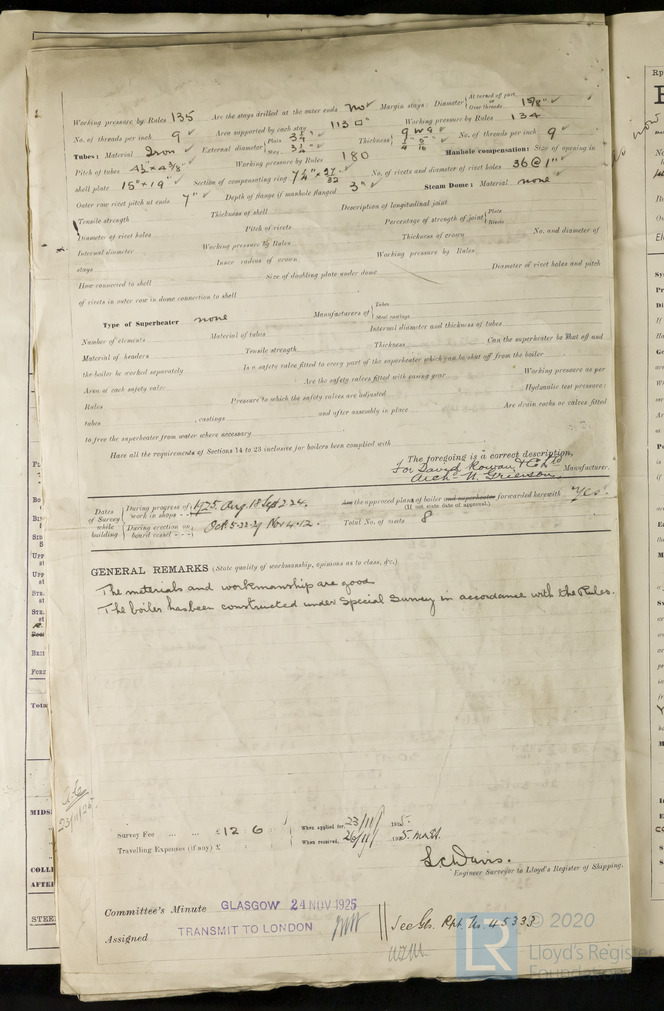 Working pressure by Rules 135 Are the stays drilled at the outer ends No Margin stays: Diameter { At turned off part, or Over threads 1 5/8"
No. of threads per inch 9 Area supported by each stay 113 □" Working pressure by Rules 134
Tubes: Material Iron External diameter { Plain 3 1/4" Stay 3 1/4" Thickness { 9 WG 1/4" 5/16" No. of threads per inch 9
Pitch of tubes 4 1/2" x 4 3/8" Working pressure by Rules 180 Manhole compensation: Size of opening in
shell plate 15" x 19" Section of compensating ring 7 1/4" x 27/32" No. of rivets and diameter of rivet holes 36 @ 1"
Outer row rivet pitch at ends 7" Depth of flange if manhole flanged 3" Steam Dome: Material none
Tensile strength Thickness of shell Description of longitudinal joint
Diameter of rivet holes Pitch of rivets Percentage of strength of joint { Plate Rivets
Internal diameter Working pressure by Rules Thickness of crown No. and diameter of
stays Inner radius of crown Working pressure by Rules
How connected to shell Size of doubling plate under dome Diameter of rivet holes and pitch
of rivets in outer row in dome connection to shell
Type of Superheater none Manufacturers of { Tubes Steel castings
Number of elements Material of tubes Internal diameter and thickness of tubes
Material of headers Tensile strength Thickness Can the superheater be shut off and
the boiler be worked separately Is a safety valve fitted to every part of the superheater which can be shut off from the boiler
Area of each safety valve Are the safety valves fitted with easing gear Working pressure as per
Rules Pressure to which the safety valves are adjusted Hydraulic test pressure:
tubes , castings and after assembly in place Are drain cocks or valves fitted
to free the superheater from water where necessary
Have all the requirements of Sections 14 to 23 inclusive for boilers been complied with
The foregoing is a correct description,
For David Rowan & Co Ltd
Arch. W. Grierson Manufacturer.
Dates of Survey while building { During progress of work in shops - - 1925. Aug. 18 Sep 2. 24.
During erection on board vessel - - - Oct. 5. 22. 29 Nov 4. 12.
Are the approved plans of boiler and superheater forwarded herewith Yes.
(If not state date of approval.)
Total No. of visits 8
GENERAL REMARKS (State quality of workmanship, opinions as to class, &c.)
The materials and workmanship are good
The boiler has been constructed under Special Survey in accordance with the Rules.
23/11/25
Survey Fee ... ... £ 12 : 6 : When applied for, 23/11/1925.
Travelling Expenses (if any) £ : : When received, 26/11/1925.
L C Davis.
Engineer Surveyor to Lloyd's Register of Shipping.
Committee's Minute GLASGOW 24 NOV 1925
Assigned TRANSMIT TO LONDON
See Gls. Rpt. No. 45333
LR © 2020
Lloyd's Register
Foundation